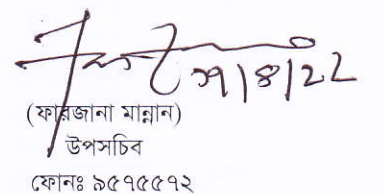 ২১/৪/২২
(ফারজানা মান্নান)
উপসচিব
ফোনঃ ৯৫৭৫৫৭২